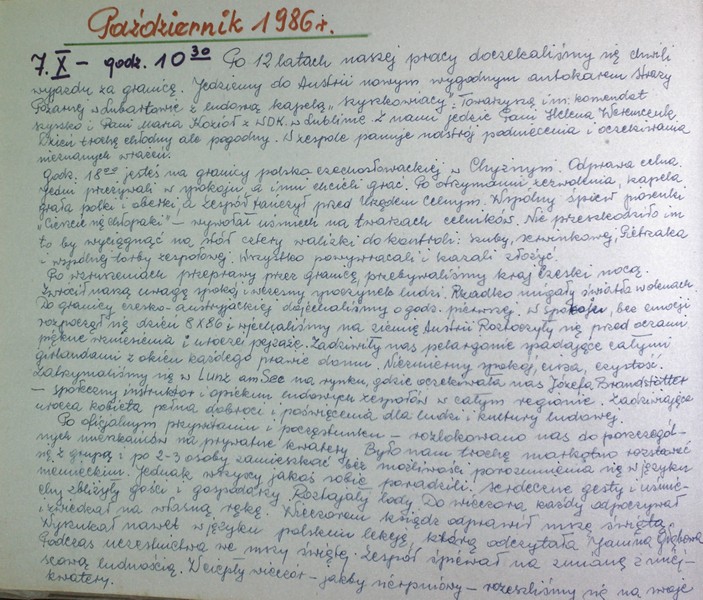 Październik 1986 r.
7.X – godz. 10 30 Po 12 latach naszej pracy doczekaliśmy się chwili
wyjazdu za granicę. Jedziemy do Austrii nowym wygodnym autokarem Straży
Pożarnej w Lubartowie z ludową kapelą „
Dzień trochę chłodny ale pogodny. W zespole panuje nastrój podniecenia i oczekiwania
nieznanych wrażeń.
godz. 18 00 jesteś na granicy polsko czechosłowackiej w Chyżnym. Odprawa celna.
Jedni przeżywali w spokoju a inni chcieli grać. Po otrzymaniu zezwolenia, kapela
grała polki i oberki, a zespół tańczył przed Urzędem Celnym. Wspólny śpiew piosenki
"Cieście się chłopaki" – wywołał uśmiech na twarzach celników. Nie przeszkodziło im
to by wyciągnąć na stół cztery walizki do kontroli:
i wspólnej torby zespołowej. Wszystko powywracali i kazali złożyć.
Po wzruszeniach przeprawy przez granicę, przebywaliśmy kraj czeski nocą.
Zwrócił naszą uwagę spokój i wczesny spoczynek ludzi. Rzadko migały światła w oknach.
Do granicy czesko-austryjackiej dojechaliśmy o godz. pierwszej. W spokoju, bez emocji
rozpoczął się dzień 8 X 86 i wjechaliśmy na ziemię Austrii. Roztoczyły się przed oczami
piękne wzniesienia i uroczei pejzaże. Zadziwiły nas pelargonie spadające całymi
girlandami z okien każdego prawie domu. Niezmierny spokój, cisza, czystość.
Zatrzymaliśmy się w Lunz am See na rynku, gdzie oczekiwała nas Józefa Brandstätter
– społeczny instruktor i opiekun ludowych zespołów w całym regionie. Zadziwiająco
urocza kobieta pełna dobroci i poświęcenia dla ludzi i kultury ludowej.
Po oficjalnym przywitaniu i poczęstunku – rozlokowano nas do poszczegól-
nych mieszkańców na prywatne kwatery. Było nam trochę markotno rozstawać
się z grupą i po 2-3 osoby zamieszkać bez możliwości porozumienia się w języku
niemieckim. Jednak wszyscy jakoś sobie poradzili. Serdeczne gesty i uśmie-
chy zbliżyły gości i gospodarzy. Roztajały lody. Do wieczora każdy odpoczywał
i zwiedzał na własną rękę. Wieczorem ksiądz odprawił mszę świętą.
Wyszukał nawet w języku polskim lekcję, którą odczytała Janina
Podczas uczestnictwa we mszy świętej zespół śpiewał na zmianę z miej-
scową ludnością. W ciepły wieczór – jakby sierpniowy – rozeszliśmy się na swoje
kwatery.